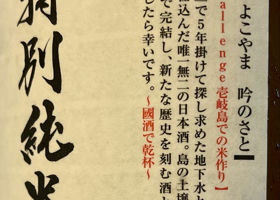 よこやま 吟のさと
allenge 壱岐島での米作り】
で５年掛けて探し求めた地下水と
込んだ唯一無二の日本酒。島の土壌
で完結し、新たな歴史を刻む酒と
したら幸いです。～國酒で乾杯～
特別純米